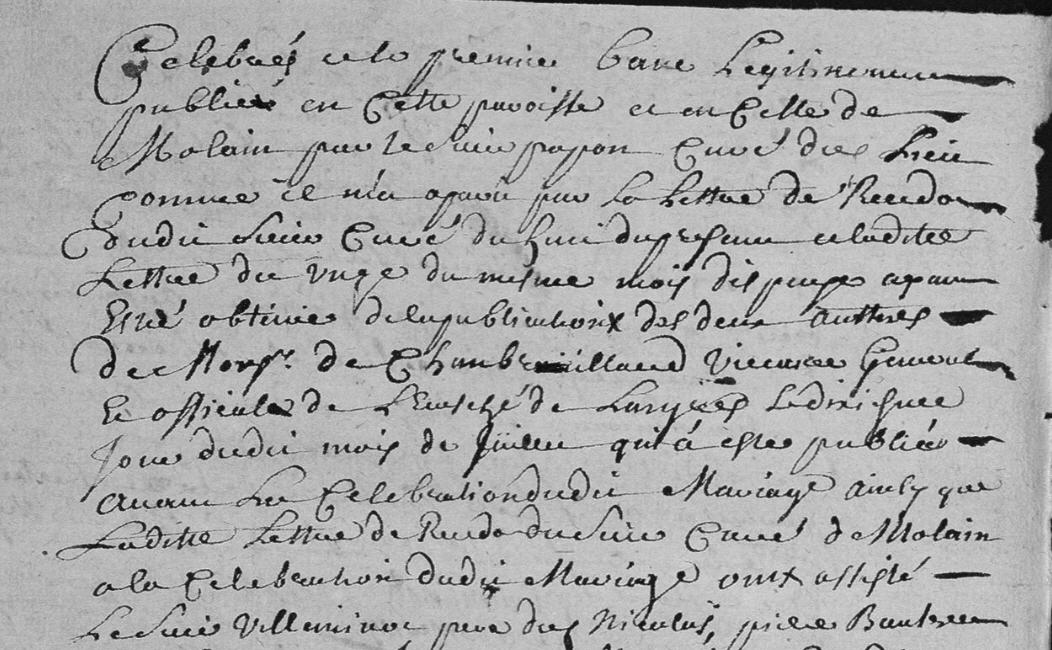 Celebrés et le premier banc Legitimement
publiéé en Cette paroisse et en Celle de
Molain par le Sieur papon Curé dud Lieu
comme il m'a aparu par la Lettre de Recedo
dudit Sieur Curé du huit du present et ladite
Lettre du vnze du mesme mois dispense ayant
Esté obtenue de la publication des deux auttres
de Monsr. de Chambruillard Vicaire General
Et official de L'Evesché de Langres Le dixiesme
Jour dudit mois de Juillet qui à esté publiée
avant La Celebration dudit Mariage ainsy que
Laditte Lettre de Recedo du Sieur Curé de Molain
a la Celebration dudit Mariage ont assisté
Le Sieur Villeminot pere dud Nicolas, pierre